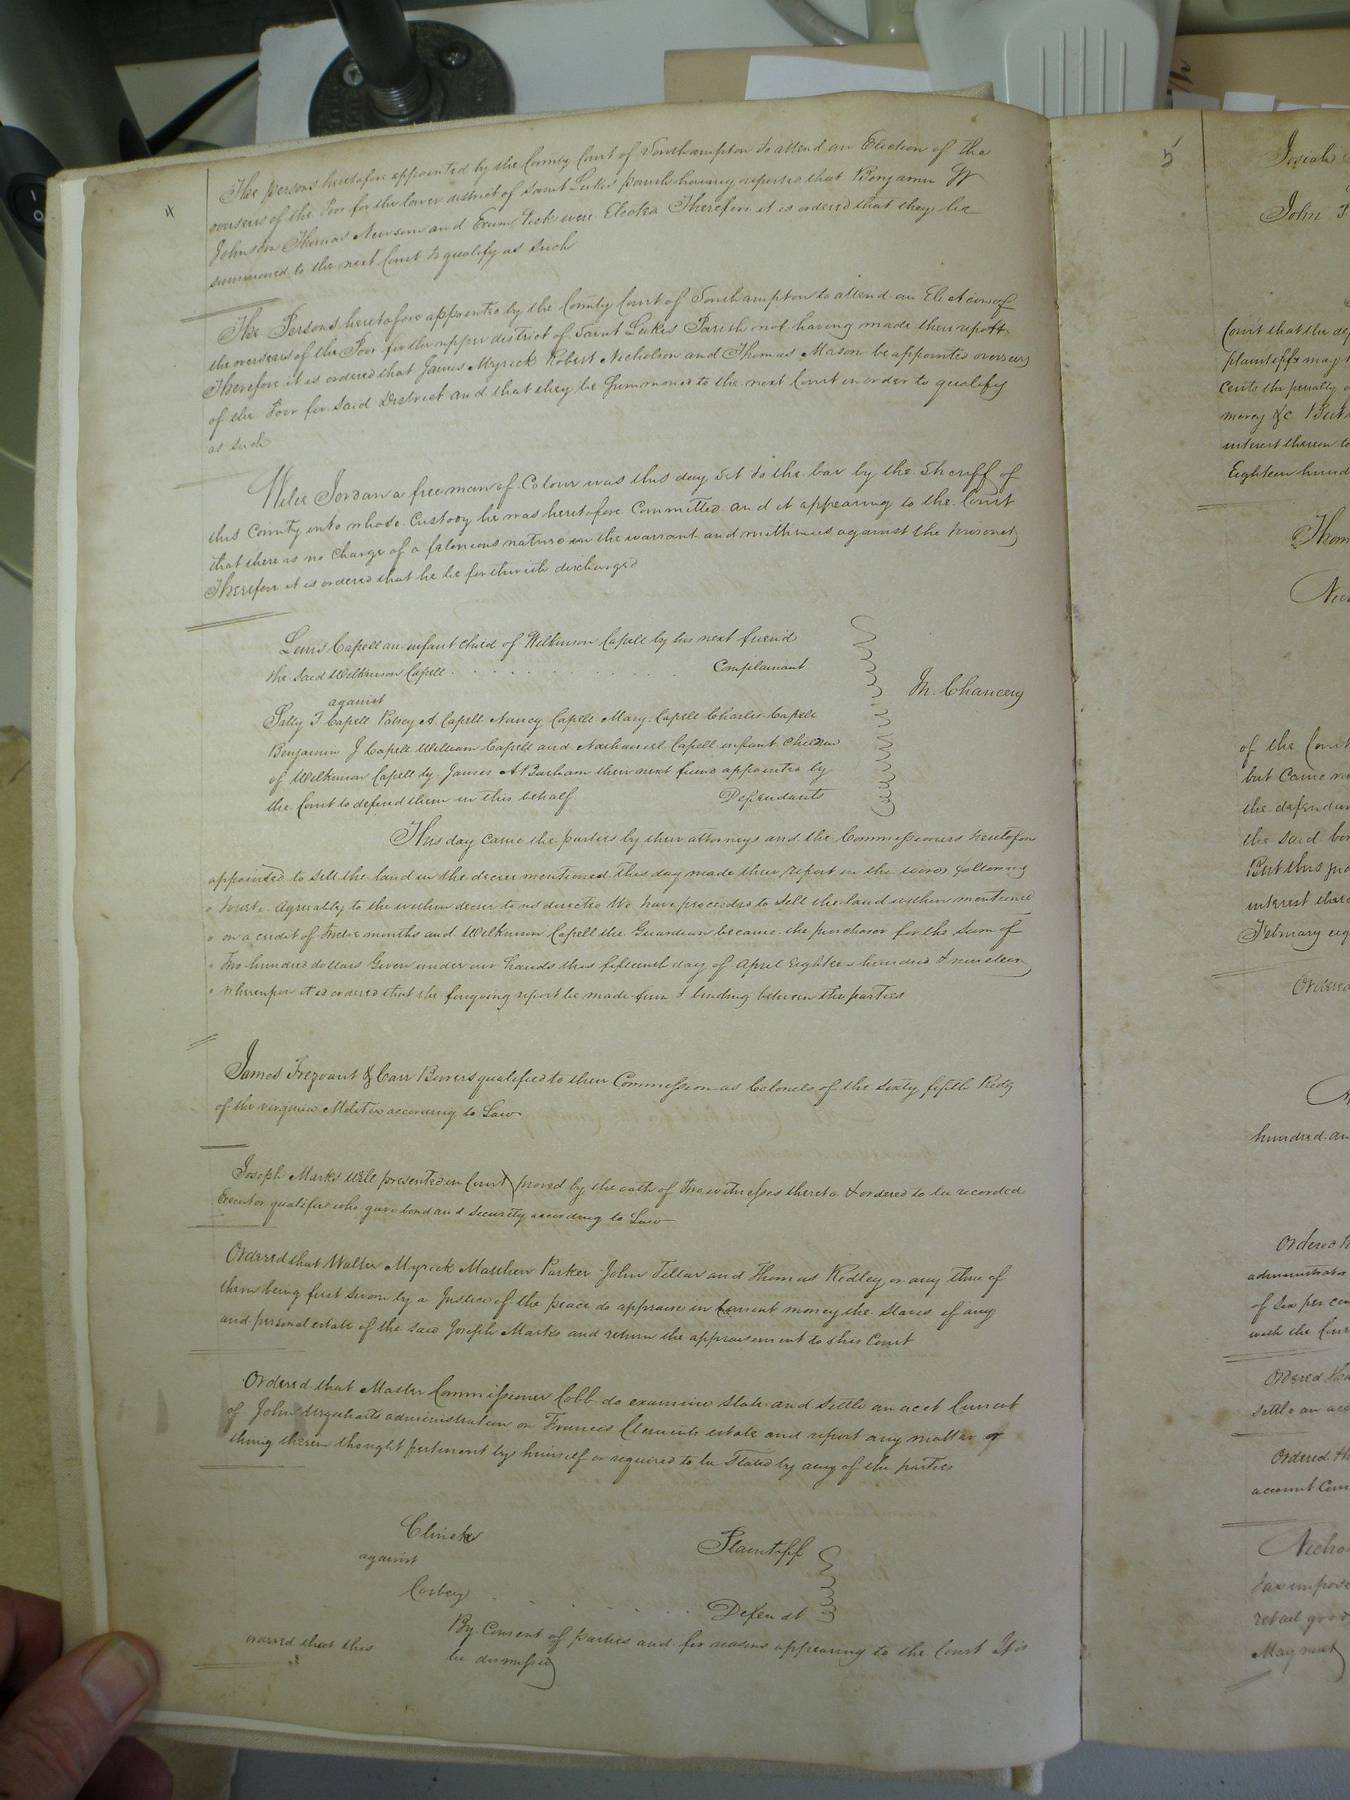 4
The persons heretofore appointed by the County Court of Southampton to attend an Election of the
overseers of the Poor for the lower district of Saint Lukes parish having reported that Benjamin W
Johnson Thomas Newsom and Exum were Elected Therefore it is ordered that they be
summoned to the next Court to qualify as such
The Persons heretofore appointed by the County Court of Southampton to attend an Election of
the overseers of the Poor for the upper district of Saint Lukes Parish not having made their report
Therefore it is ordered that James Myrick Robert Nicholson and Thomas Mason be appointed overseers
of the Poor for said District and that they be Summoned to the next Court in order to qualify
as such
Wilie Jordan a free man of Colour was this day Set to the bar by the Sheriff of
this County into whose Custody he was heretofore Committed and it appearing to the Court
that there is no Charge of a felonious nature in the warrant and mittimus against the prisoner
Therefore it is ordered that he be forthwith discharged
Lewis Capell an infant child of Wilkinson Capell by his next friend
the said Wilkinson Capell . . . . . . . . Complainant
against
In Chancery
Sally T Capell Patsey A Capell Nancy Capell Mary Capell Charles Capell
Benjamin J Capell William Capell and Nathaniel Capell infant Children
of Wilkinson Capell by James A Barham their next friend appointed by
the Court to defend them in this behalf. Defendants
This day came the parties by their attorneys and the Commissioners heretofore
appointed to sell the land in the decree mentioned this day made their report in the words following
towit. Agreeably to the within decree to us directed We have proceeded to Sell the land within mentioned
on a credit of twelve months and Wilkinson Capell the Guardian became the purchaser for the Sum of
Two hundred dollars Given under our hands this fifteenth day of April Eighteen hundred & nineteen
whereupon it is ordered that the foregoing report be made firm & binding between the parties
James Trezvant & Carr Bowers qualified to their Commission as Colonels of the Sixty fifth Regt
of the virginia Militia according to Law
Joseph Marks Will presented in Court proved by the oath of two witnesses thereto & ordered to be recorded
Executor qualifies who gave bond and Security according to Law
Ordered that Walter Myrick Matthew Parker John Tellar and Thomas Ridley or any three of
them being first sworn by a Justice of the peace do appraise in Current money the Slaves if any
and personal estate of the said Joseph Marks and return the appraisement to this Court
Ordered that Master Commissioner Cobb do examine state and Settle an acct Current
of John Urquharts administration on Frances Clements estate and report any matter or
thing therein thought pertinent by himself or required to be Stated by any of the parties
Clinch Plaintiff
against
Corbey . . . . . Defendt
By Consent of parties and for reasons appearing to the Court It is
ordered that this be dismissed
5
Josiah
John
Court that the
plaintiffs may
Cents the penalty
mercy &c But
interest thereon
Eighteen hund
Thom
of the Court
but Came
the defendan
the said bon
But this
interest there
February eig
Ordered
hundred an
Ordered
administrator
of Six per cen
with the
Ordered
Settle an acc
Ordered th
account Curr
Nicho
tax impose
retail good
May next